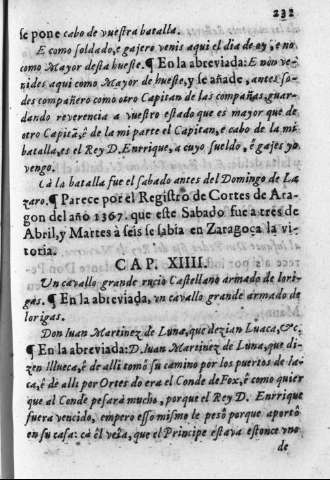 232
se pone cabo de vuestra batalla.
E como soldado, e gajero venis aqui el dia de oy, e no
como Mayor desta hueste. ¶ En la abreviada: E non ve-
nides aqui como Mayor de hueste, y se añade, antes so-
des compañero como otro Capitan de las compañas, guar-
dando reverencia a vuestro estado que es mayor que de
otro Capitã, ê de la mi parte el Capitan, e cabo de la mi
batalla, es el Rey D. Enrique, a cuyo sueldo, ê gajes yo
vengo.
Cà la batalla fue el sabado antes del Domingo de La-
zaro. ¶ Parece por el Registro de Cortes de Ara-
gon del año 1367. que este Sabado fue a tres de
Abril, y Martes à seis se sabia en Zaragoça la vi-
toria.
CAP. XIIII.
Un cavallo grande rucio Castellano armado de lori-
gas. ¶ En la abreviada, un cavallo grande armado de
lorigas.
Don Iuan Martinez de Luna, que dezian Luaca, &c.
¶ En la abreviada: D. Iuan Martinez de Luna, que di-
zen Illueca, ê de alli tomô su camino por los puertos de Ia-
ca, ê de alli por Ortes do era el Conde de Fox, ê como quier
que al Conde pesarà mucho, porque el Rey D. Enrrique
fuera vencido, empero esso mismo le pesô porque aportô
en su casa: cà èl veîa, que el Principe estava estonce vno
de